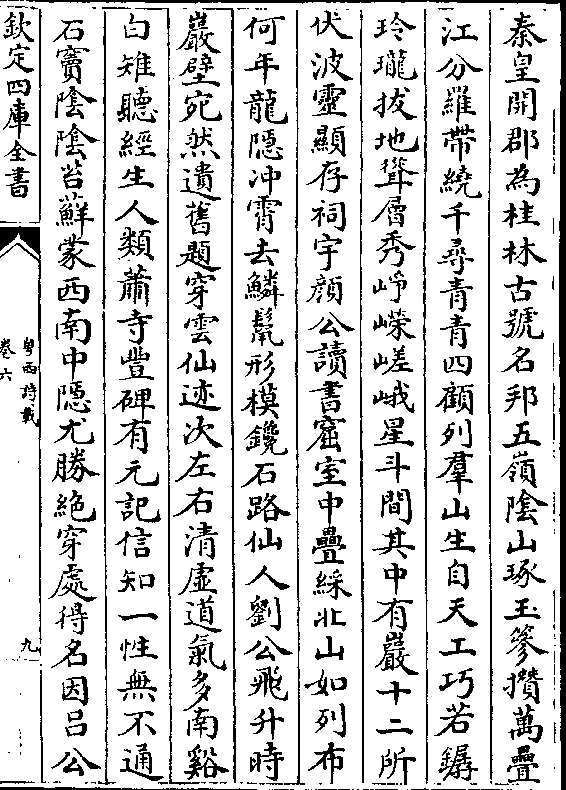 秦皇開郡為桂林古號名邦五嶺陰山琢玉簪攢萬疊
江分羅帶繞千尋青青四顧列羣山生自天工巧若鐫
玲瓏拔地聳層秀崢嶸嵯峨星斗間其中有巖十二所
伏波靈顯存祠宇顔公讀書窟室中疊綵北山如列布
何年龍隠冲霄去鱗鬛形模鑱石路仙人劉公飛升時
巖壁宛然遺舊題穿雲仙迹次左右清虚道氣多南谿
白雉聽經生人類蕭寺豐碑有元記信知一性無不通
石竇陰陰苔蘇蒙西南中隠尤勝絶穿處得名因呂公
欽定四庫全書
粤西詩載
卷六
九